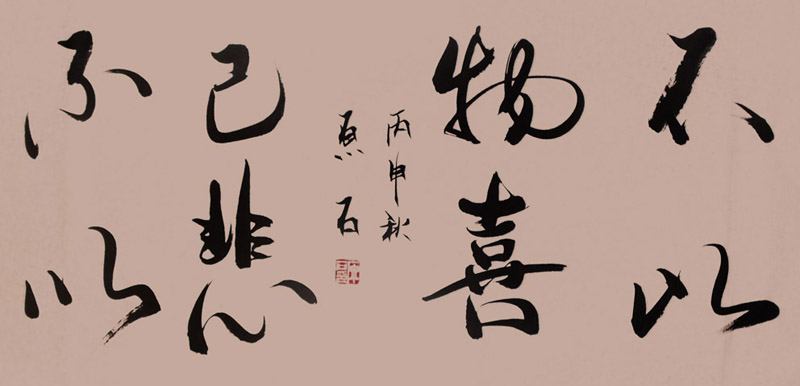 不以
物喜
不以
己悲
丙申秋
石